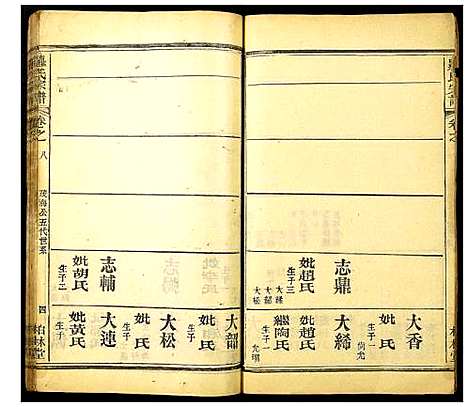 志鼎
妣趙氏
生子三
大綈
大韶
大松
大香
妣氏
生子一
尙光
大綈
妣趙氏
繼陶氏
生子一
光明
大韶
妣氏
生子
志輔
妣胡氏
生子二
大松
妣氏
生子
大連
妣黃氏
生子
氏宗譜
卷之
八
茂海公五代世系
四
柏林堂